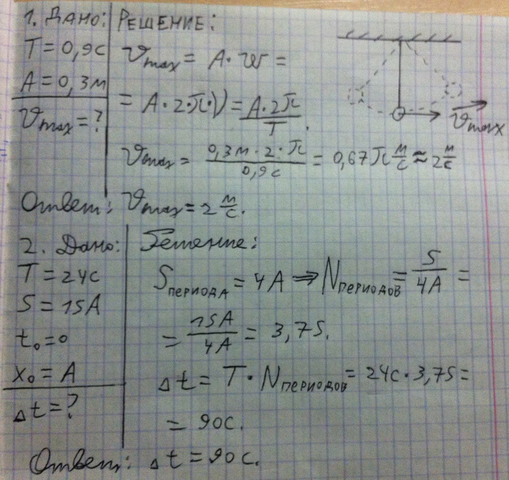 1. Дано:
T = 0,9с
A = 0,3м
υmax = ?
Решение:
υmax = A · w =
= A · 2 · π · ν = A · 2π / T.
υmax
υmax = 0,3м · 2 · π / 0,9с = 0,67π м/с ≈ 2 м/с
Ответ: υmax = 2 м/с.
2. Дано:
T = 24с
S = 15A
t₀ = 0
x₀ = A
Δt = ?
Решение:
Sпериода = 4A ⇒ Nпериодов = S / 4A =
= 15A / 4A = 3,75.
Δt = T · Nпериодов = 24с · 3,75 =
= 90с.
Ответ: Δt = 90с.